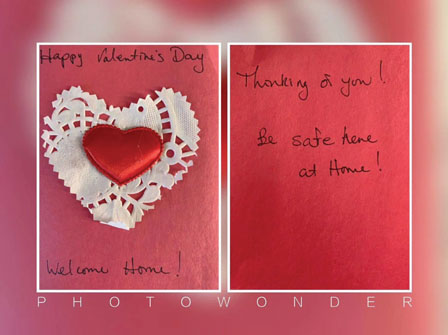 Happy Valentine's Day
Welcome Home!
Thinking of you!
Be safe here
at Home!
PHOTOWONDER